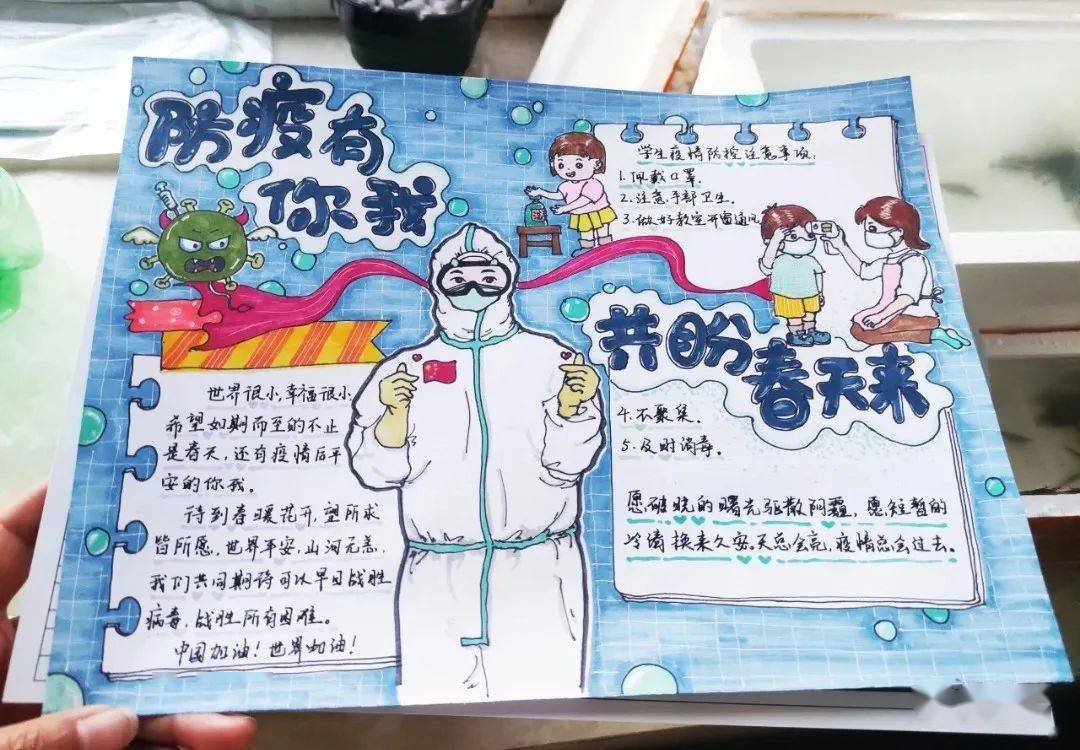 防疫有
你我
学生疫情防控注意事项:
1.佩戴口罩.
2.注意手部卫生.
3.做好教室开窗通风
共盼
春天来
世界很小,幸福很小
希望如期而至的不止
是春天,还有疫情后平
安的你我。
待到春暖花开,望所求
皆所愿,世界平安,山河无恙.
我们共同期待可以早日战胜
病毒,战胜所有困难。
中国加油!世界加油!
4.不聚集.
5.及时消毒.
愿破晓的曙光驱散阴霾,愿短暂的
冷清换来久安.天总会亮,疫情总会过去。